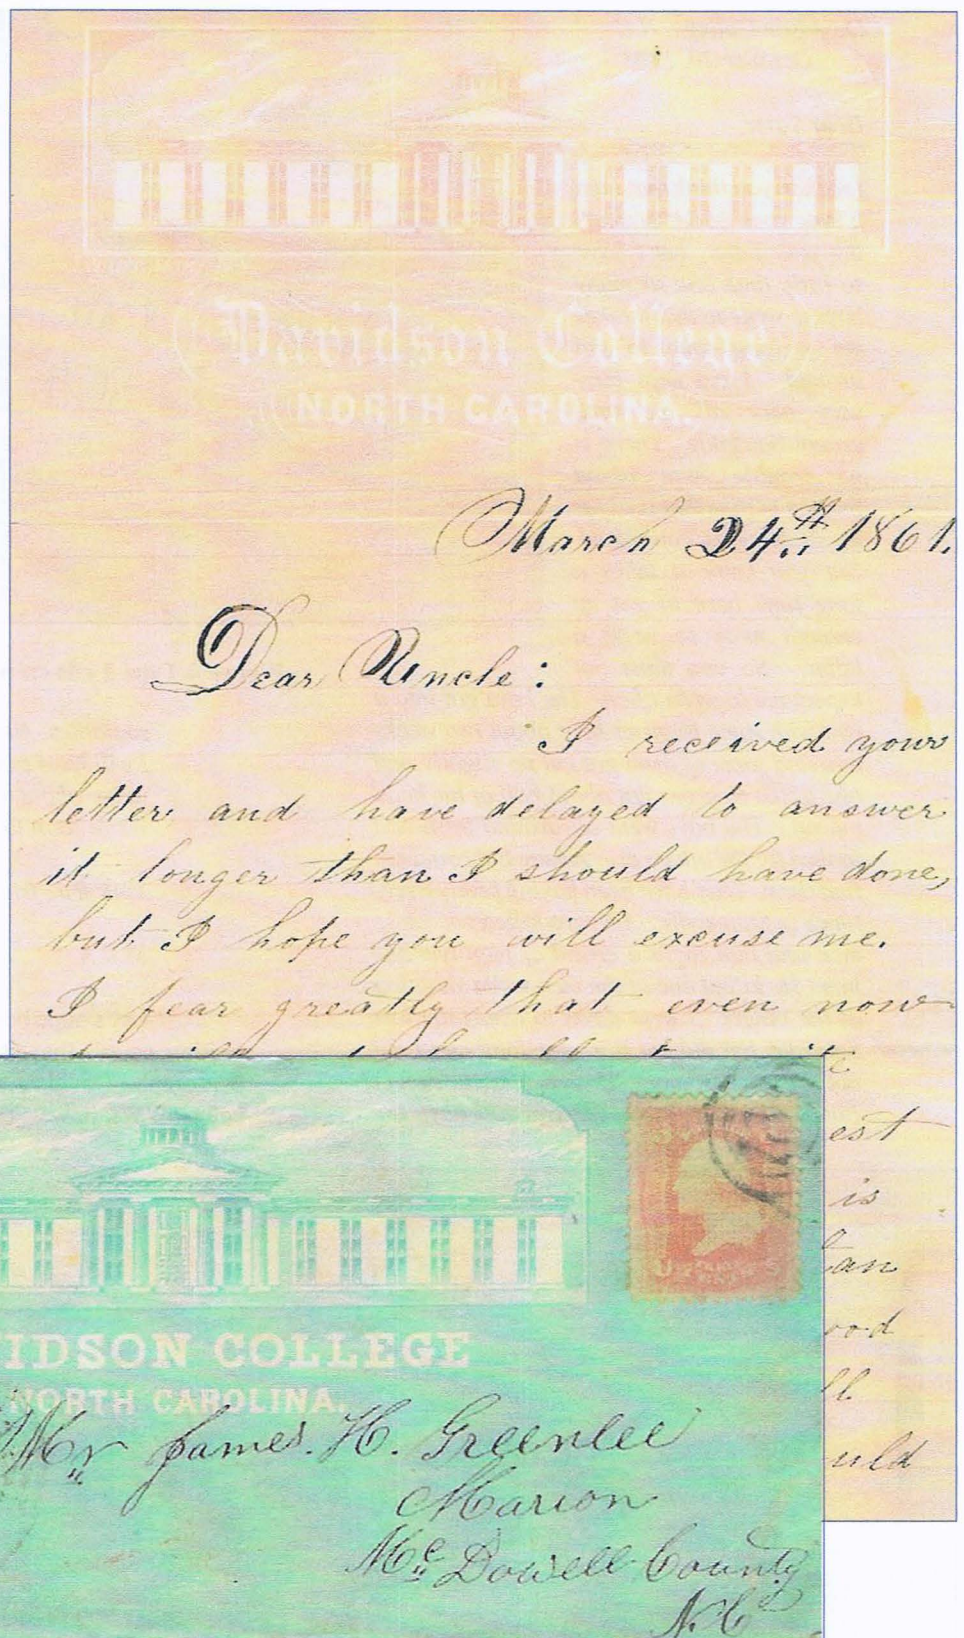 Davidson College
NORTH CAROLINA.
March 24th 1861.
Dear Uncle:
I received your
letter and have delayed to answer
it longer than I should have done,
but I hope you will excuse me.
I fear greatly that even now
est
is
an
ood
ll
uld
IDSON COLLEGE
NORTH CAROLINA.
Mr James. H. Greenlee
Marion
Mc Dowell County
N.C